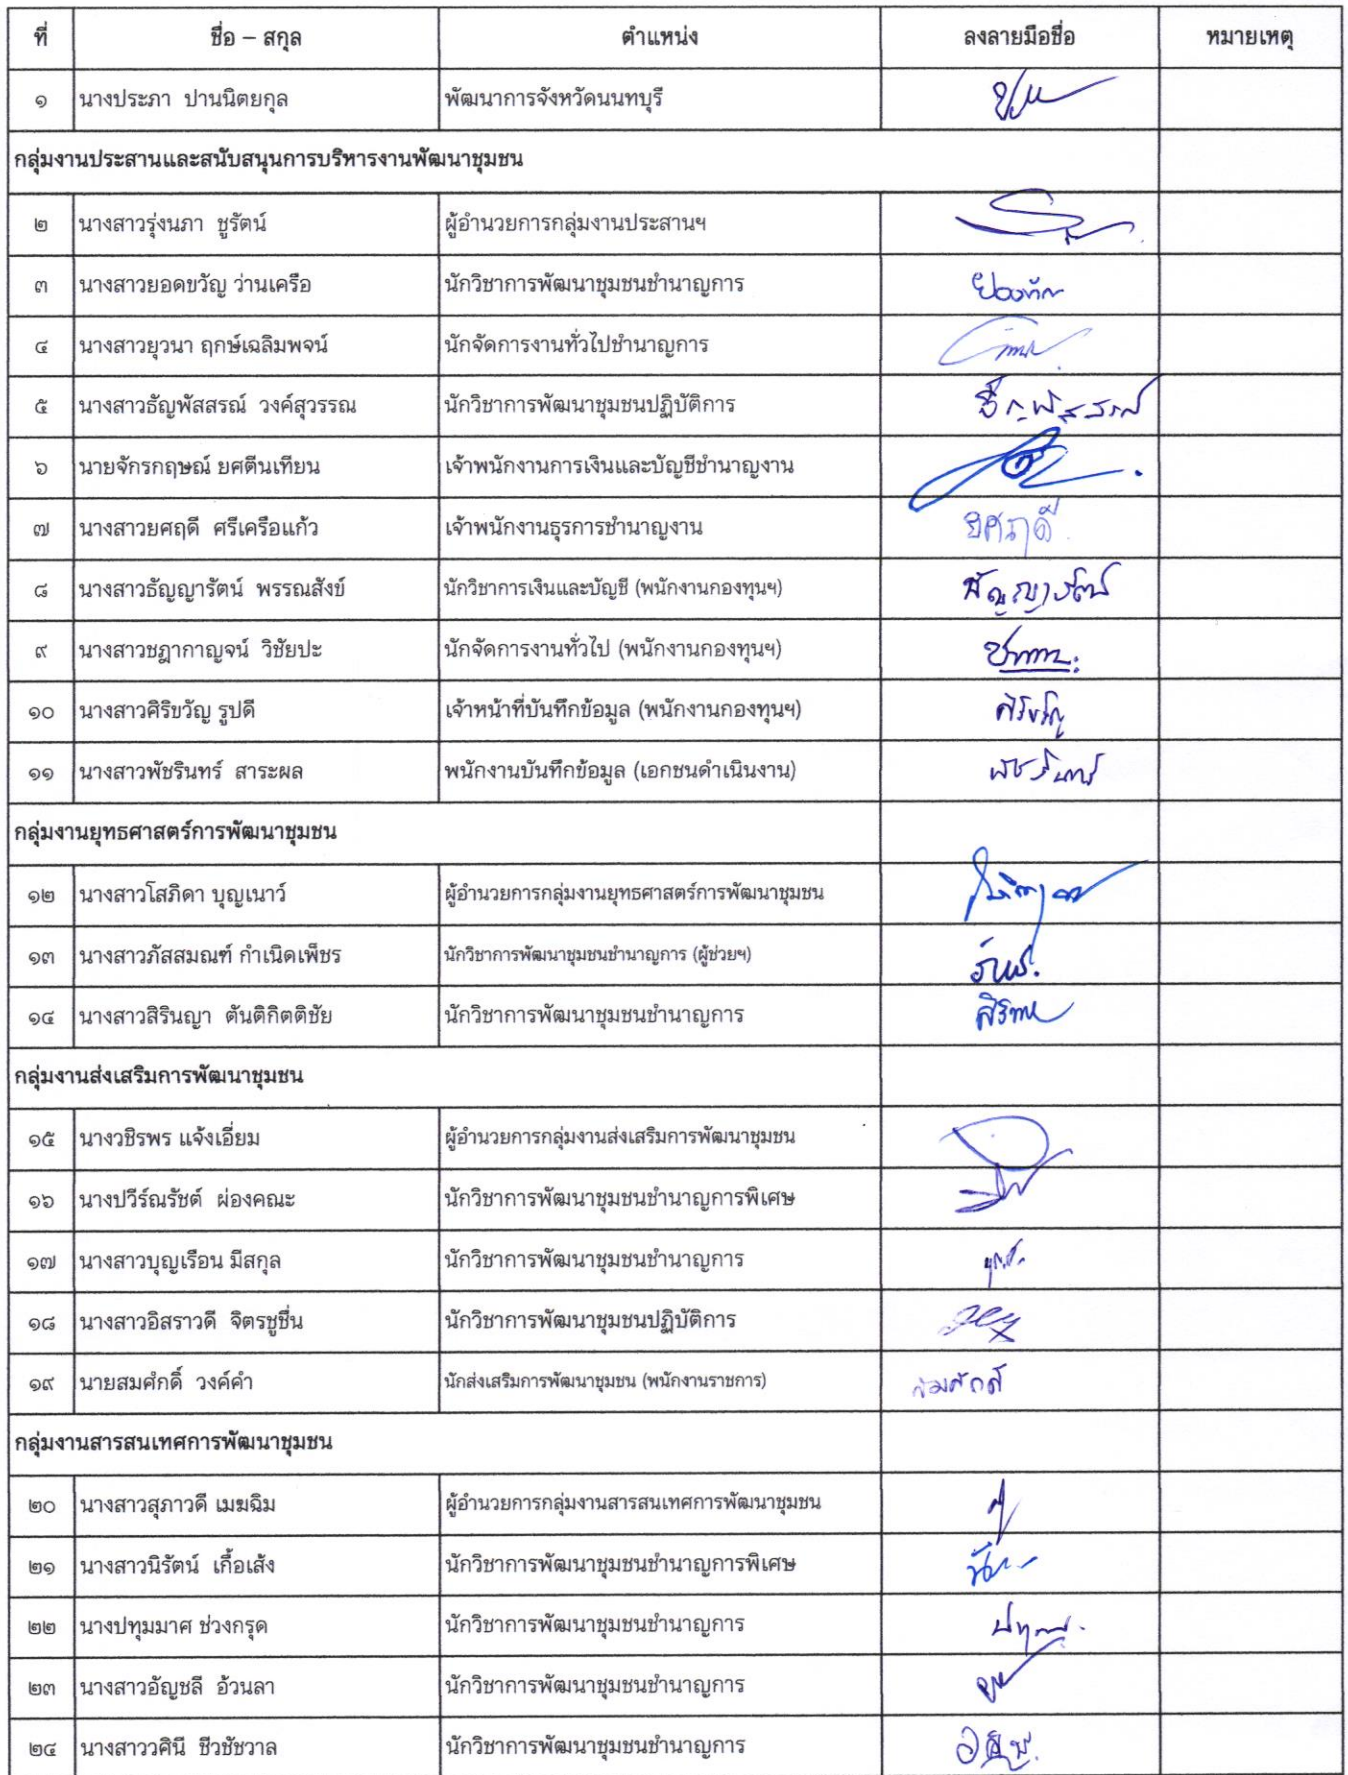 ที่ ชื่อ – สกุล ตำแหน่ง ลงลายมือชื่อ หมายเหตุ
๑ นางประภา ปานนิตยกุล พัฒนาการจังหวัดนนทบุรี
กลุ่มงานประสานและสนับสนุนการบริหารงานพัฒนาชุมชน
๒ นางสาวรุ่งนภา ชูรัตน์ ผู้อำนวยการกลุ่มงานประสานฯ
๓ นางสาวยอดขวัญ ว่านเครือ นักวิชาการพัฒนาชุมชนชำนาญการ
๔ นางสาวยุวนา ฤกษ์เฉลิมพจน์ นักจัดการงานทั่วไปชำนาญการ
๕ นางสาวธัญพัสสรณ์ วงค์สุวรรณ นักวิชาการพัฒนาชุมชนปฏิบัติการ
๖ นายจักรกฤษณ์ ยศตีนเทียน เจ้าพนักงานการเงินและบัญชีชำนาญงาน
๗ นางสาวยศฤดี ศรีเครือแก้ว เจ้าพนักงานธุรการชำนาญงาน ยศฤดี
๘ นางสาวธัญญารัตน์ พรรณสังข์ นักวิชาการเงินและบัญชี (พนักงานกองทุนฯ) ธัญญารัตน์
๙ นางสาวชฎากาญจน์ วิชัยปะ นักจัดการงานทั่วไป (พนักงานกองทุนฯ)
๑๐ นางสาวศิริขวัญ รูปดี เจ้าหน้าที่บันทึกข้อมูล (พนักงานกองทุนฯ) ศิริขวัญ
๑๑ นางสาวพัชรินทร์ สาระผล พนักงานบันทึกข้อมูล (เอกชนดำเนินงาน) พัชรินทร์
กลุ่มงานยุทธศาสตร์การพัฒนาชุมชน
๑๒ นางสาวโสภิดา บุญเนาว์ ผู้อำนวยการกลุ่มงานยุทธศาสตร์การพัฒนาชุมชน
๑๓ นางสาวภัสสมณฑ์ กำเนิดเพ็ชร นักวิชาการพัฒนาชุมชนชำนาญการ (ผู้ช่วยฯ)
๑๔ นางสาวสิรินญา ตันติกิตติชัย นักวิชาการพัฒนาชุมชนชำนาญการ
กลุ่มงานส่งเสริมการพัฒนาชุมชน
๑๕ นางวชิรพร แจ้งเอี่ยม ผู้อำนวยการกลุ่มงานส่งเสริมการพัฒนาชุมชน
๑๖ นางปวีร์ณรัชต์ ผ่องคณะ นักวิชาการพัฒนาชุมชนชำนาญการพิเศษ
๑๗ นางสาวบุญเรือน มีสกุล นักวิชาการพัฒนาชุมชนชำนาญการ
๑๘ นางสาวอิสราวดี จิตรชูชื่น นักวิชาการพัฒนาชุมชนปฏิบัติการ
๑๙ นายสมศักดิ์ วงค์คำ นักส่งเสริมการพัฒนาชุมชน (พนักงานราชการ) สมศักดิ์
กลุ่มงานสารสนเทศการพัฒนาชุมชน
๒๐ นางสาวสุภาวดี เมฆฉิม ผู้อำนวยการกลุ่มงานสารสนเทศการพัฒนาชุมชน
๒๑ นางสาวนิรัตน์ เกื้อเส้ง นักวิชาการพัฒนาชุมชนชำนาญการพิเศษ
๒๒ นางปทุมมาศ ช่วงกรุด นักวิชาการพัฒนาชุมชนชำนาญการ
๒๓ นางสาวอัญชลี อ้วนลา นักวิชาการพัฒนาชุมชนชำนาญการ
๒๔ นางสาววศินี ชีวชัชวาล นักวิชาการพัฒนาชุมชนชำนาญการ